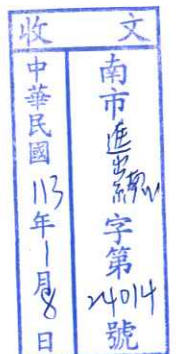 收文
南市進出口字第24014號
中華民國113年1月8日